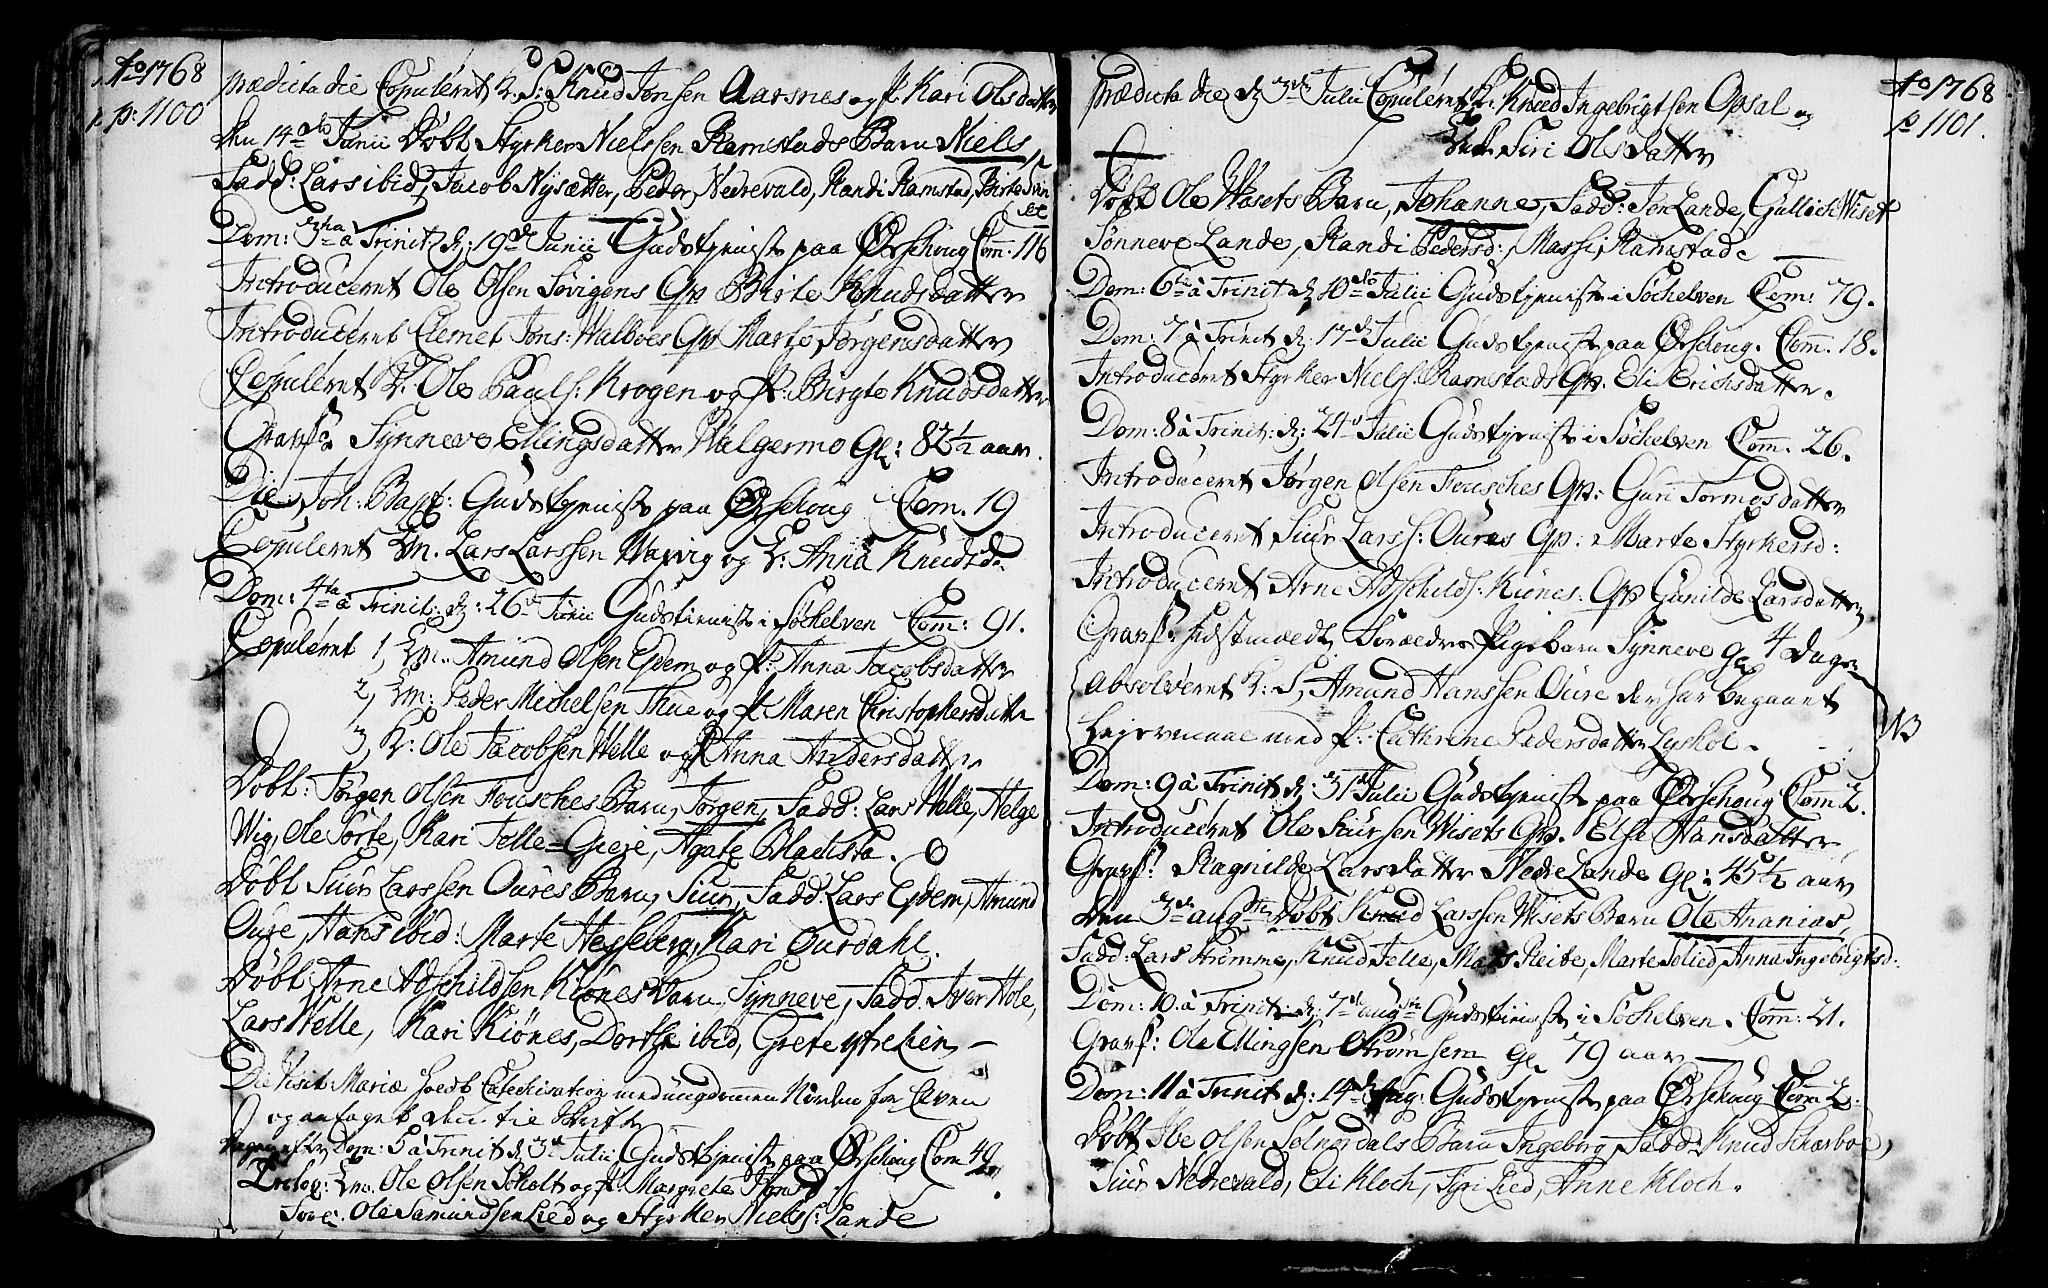 Ao 1768
p. 1100
Prædicta die Copuleret K. S. Knud Jonsen Aarsnes og P. Kari Olsdatter
Den 14de Junii Døbt Styrker Nielssen Ramstads Barn Niels,
Fadd: Lars ibid, Jacob Nysætter, Peder Nedrevald, Randi Ramstad, Birte
Dom: 3tia à Trinit. d: 19de Junii Gudstjeniste paa Ørschoug Com: 116
Introduceret Ole Olsen Søvigens Qv. Birte Knudsdatter
Introduceret Clemet Jons: Walboes Qv. Marte Jørgensdatter
Copuleret K. Ole Pauls: Krogen og P: Birgte Knudsdatter
Gravf. Synneve Ellingsdatter Walgermo Gl: 82½ aar.
Die Joh: Bapt: Gudstjeniste paa Ørschoug Com. 19
Copuleret Em. Lars Larssen Warvig og E: Anna Knudsd.
Dom: 4ta à Trinit. d: 26de Junii Gudstieniste i Søchelven Com: 91.
Copuleret 1, Em. Amund Olsen Egdem og P: Anna Jacobsdatter
2, Em: Peder Michelsen Thue og P. Maren Christophersdatter
3, K: Ole Jacobsen Welle og P. Anna Andersdatter
Døbt: Jørgen Olsen Fousches Barn, Jørgen, Fadd: Lars Welle, Helge
Wig, Ole Sorte, Kari Jelle=Gieje, Agate
Døbt Siur Larssen Oures Barn, Siur, Fadd. Lars Egdem, Amund
Oure, Hans ibid: Marte Hesseberg, Kari Ourdahl.
Døbt Arne Adschildsen Kiønes Barn Synneve, Fadd. Iver Hole,
Lars Welle, Kari Kiønes, Dorthe ibid, Grete
Die Visit: Mariæ holdt Catechisation med ungdommen Norden for Elven
og antaget dem til Skrifte
Dom: 5 à Trinit. d: 3de Julii Gudstjeniste paa Ørschoug Com 49
Trolov: Em. Ole Olsen Scholt og P. Margrete
Forl. Ole Samundsen Lied og Styrker Niels: Lande
Ao 1768
p. 1101.
Prædicta die d: 3de Julii Copuleret K: Knud Ingebrigtsen Opsal og
Enk. Siri Olsdatter
Døbt Ole Wisets Barn, Johanne, Fadd: Jon Lande, Gullich Wiset
Sønneve Lande, Randi Pedersd: Massi Ramstad.
Dom: 6te à Trinit. d: 10de Julii Gudstjeniste i Søchelven Com: 79.
Dom: 7 à Trinit d: 17de Julii Gudstjeniste paa Ørschoug. Com. 18.
Introduceret Styrker Niels: Ramstads Qv. Eli Erichsdatter.
Dom: 8 à Trinit: d: 24de Julii Gudstjeniste i Søchelven Com. 26.
Introduceret Jørgen Olsen Fousches Qv: Guri Tormosdatter
Introduceret Siur Larss: Oures Qv: Marte Styrkersd:
Introduceret Arne Adschilds: Kiønes. Qv Gunilde Larsdatter
Gravf. Pigebarn Synneve Gl 4 Dage
Absolveret K: S, Amund Hanssen Oure der har begaaet
Lejermaal med P: Cathrine Pedersdatter Lyshol.
N3
Dom: 9 à Trinit. d: 31te Julii Gudstjeniste paa Ørschoug Com 2.
Introduceret Ole Siursen Wisets Qv. Else Hansdatter
Gravf: Ragnilde Larsdatter Nedre Lande Gl: 45½ aar
Den 3de augusti Døbt Knud Larssen Wisets Barn Ole Ananias,
Fadd: Lars Strømme, Knud Jelle, Mats Reite, Marte Selied, Anna Ingebrigtsd.
Dom: 10 à Trinit. d: 7de augsti Gudstieniste i Søchelven. Com: 21.
Gravf: Ole Ellingsen Strømsem Gl 79 aar
Dom: 11 à Trinit d: 14de Aug. Gudstjeniste paa Ørschoug Com 2.
Døbt Ibe Olsen Solnørdals Barn Ingeborg, Fadd: Knud Scharboe,
Siur Nedrevald, Eli Kloch, Syri Lied, Anne Kloch.